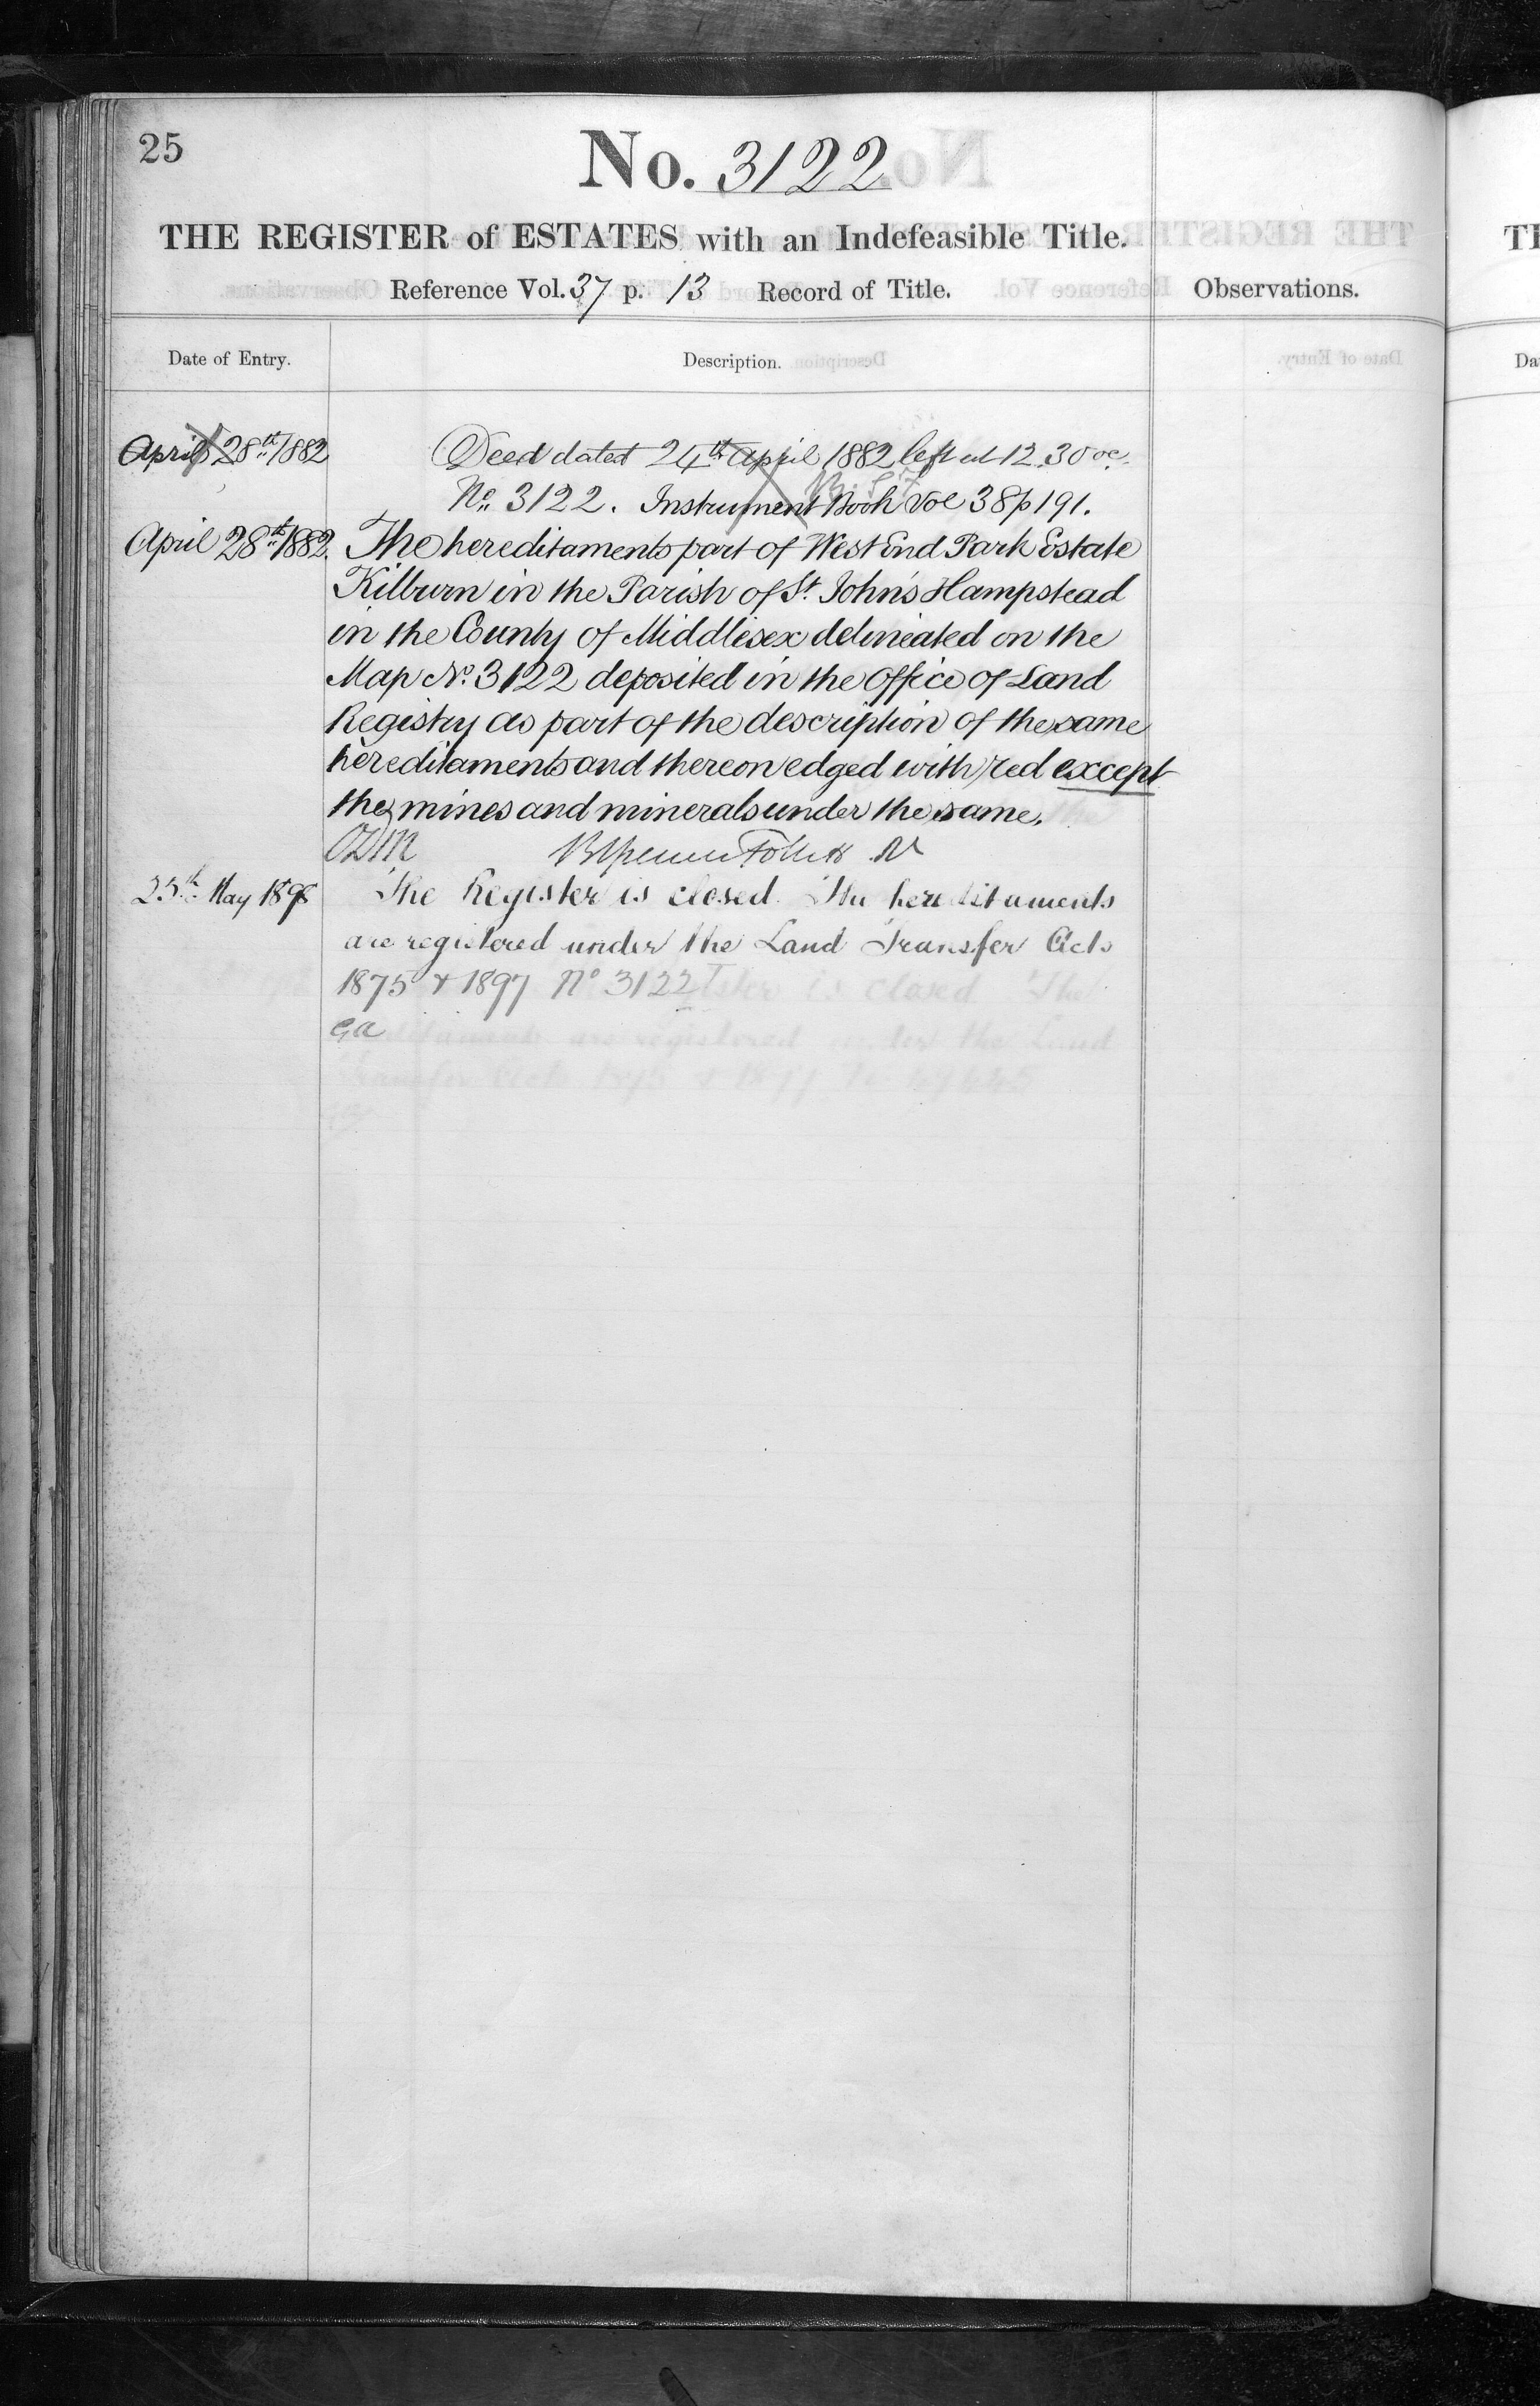 25
No. 3122
THE REGISTER of ESTATES with an Indefeasible Title.
Reference Vol. 37 p. 13 Record of Title.
Observations.
Date of Entry.
Description.
April 28th 1882
Deed dated 24th April 1882 left at 12.30 oc.
No. 3122. Instrument Book Vol 38 p 191.
April 28th 1882. The hereditaments part of West End Park Estate
Kilburn in the Parish of St. John's Hampstead
in the County of Middlesex delineated on the
Map No. 3122 deposited in the Office of Land
Registry as part of the description of the same
hereditaments and thereon edged with red except
the mines and minerals under the same.
25th May 1898 The Register is closed. The hereditaments
are registered under the Land Transfer Acts
1875 & 1897 No 3122
TH
Da